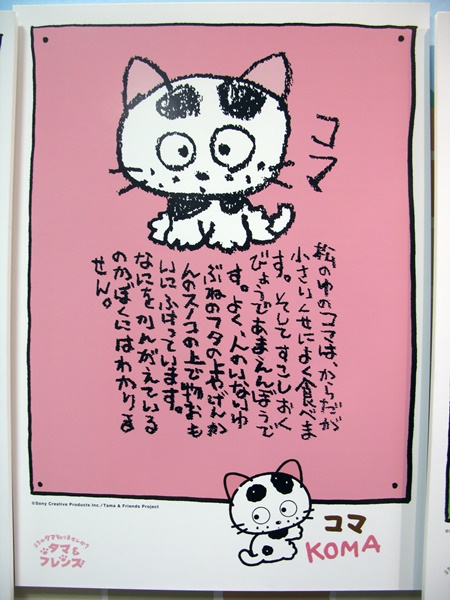 コマ
松のゆのコマは、からだが
小さいくせによく食べま
す。そしてすこしおく
びょうであまえんぼうで
す。よく、人のいないゆ
ぶねのフタの上や、げんか
んのスノコの上で物おも
いにふけっています。
なにをかんがえている
のかぼくにはわかりま
せん。
©Sony Creative Products Inc./Tama & Friends Project
うちのタマ知りませんか?
タマ&
フレンズ
コマ
KOMA